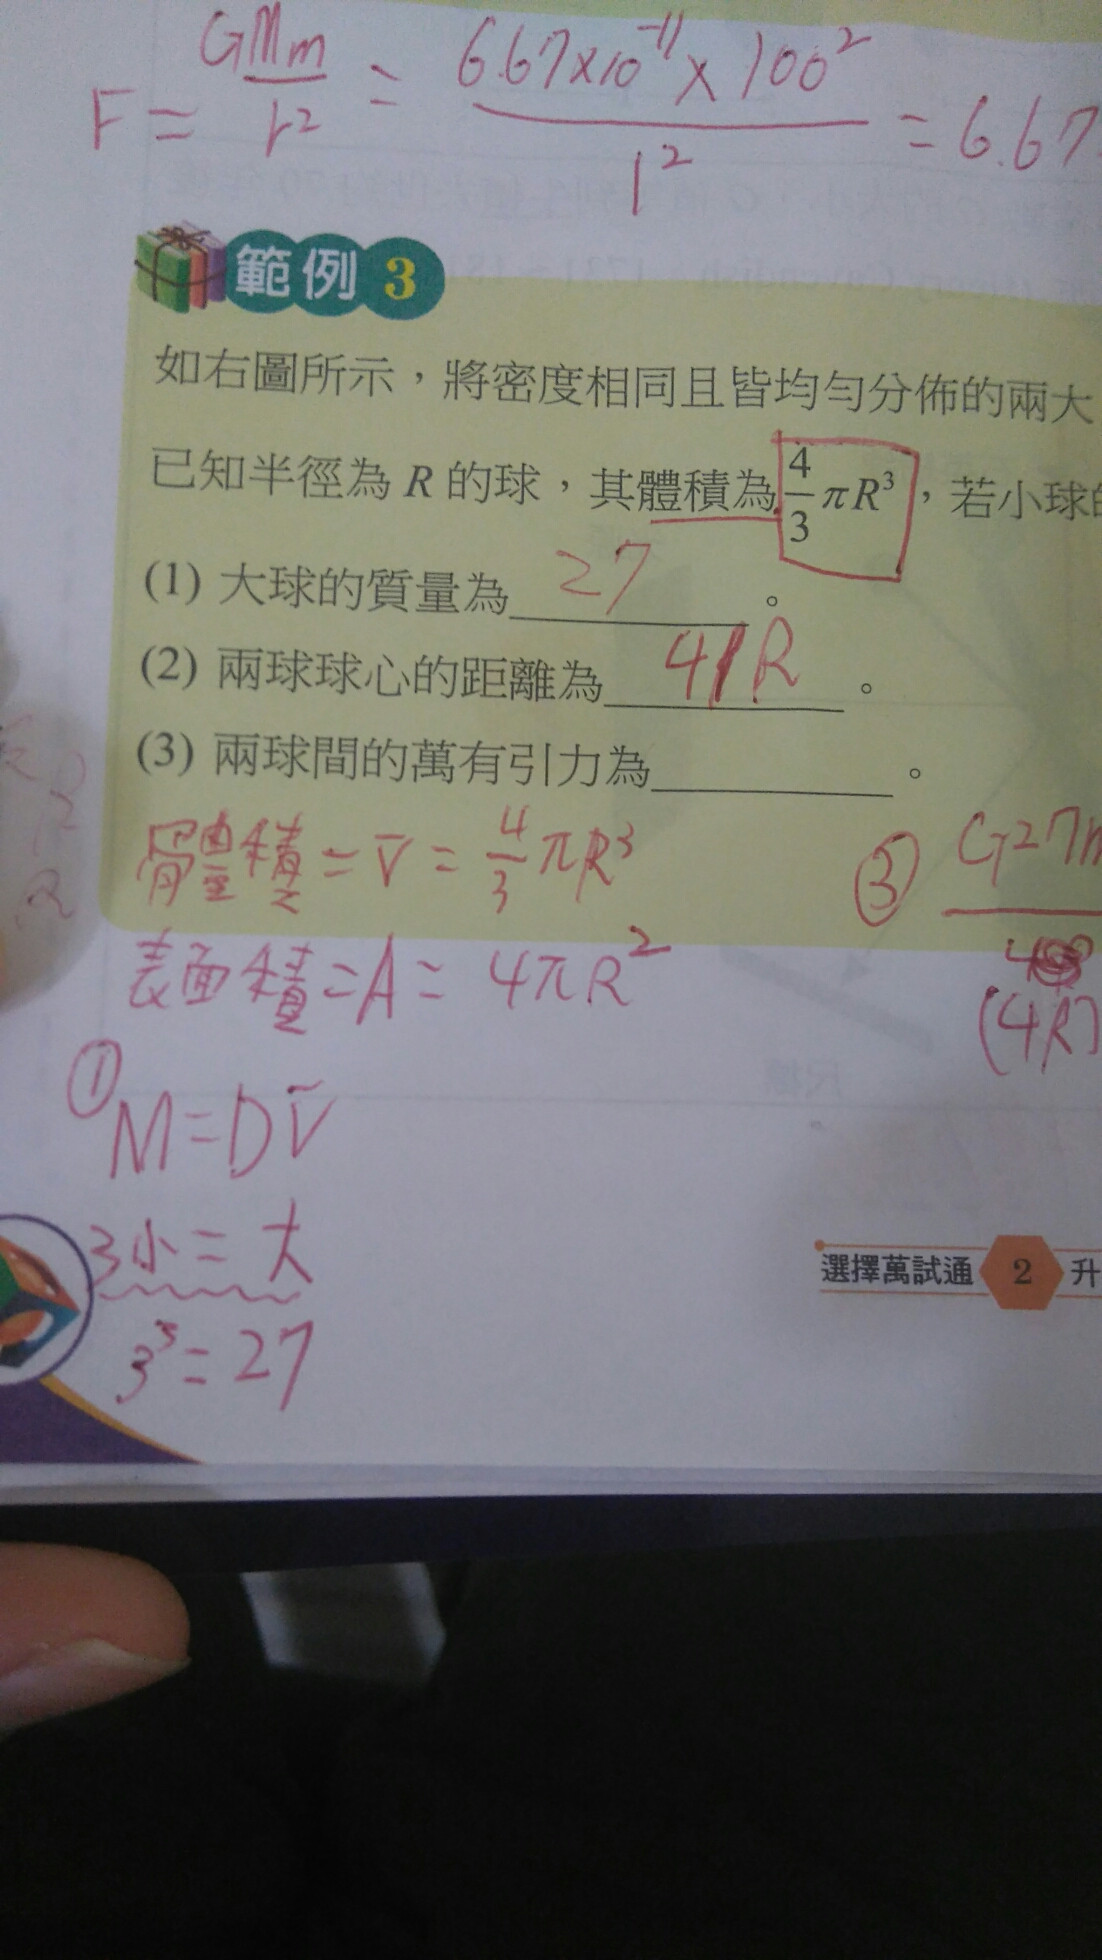 F = GMm/r² = 6.67×10⁻¹¹ × 100²/1² = 6.67
範例 3
如右圖所示，將密度相同且皆均勻分佈的兩大
已知半徑為 R 的球，其體積為 4/3 πR³，若小球的
(1) 大球的質量為 27 。
(2) 兩球球心的距離為 4R 。
(3) 兩球間的萬有引力為 。
體積 = V = 4/3 πR³
③ G27m
(4R)
表面積 = A = 4πR²
① M = DV
3小 = 大
3³ = 27
選擇萬試通 2 升